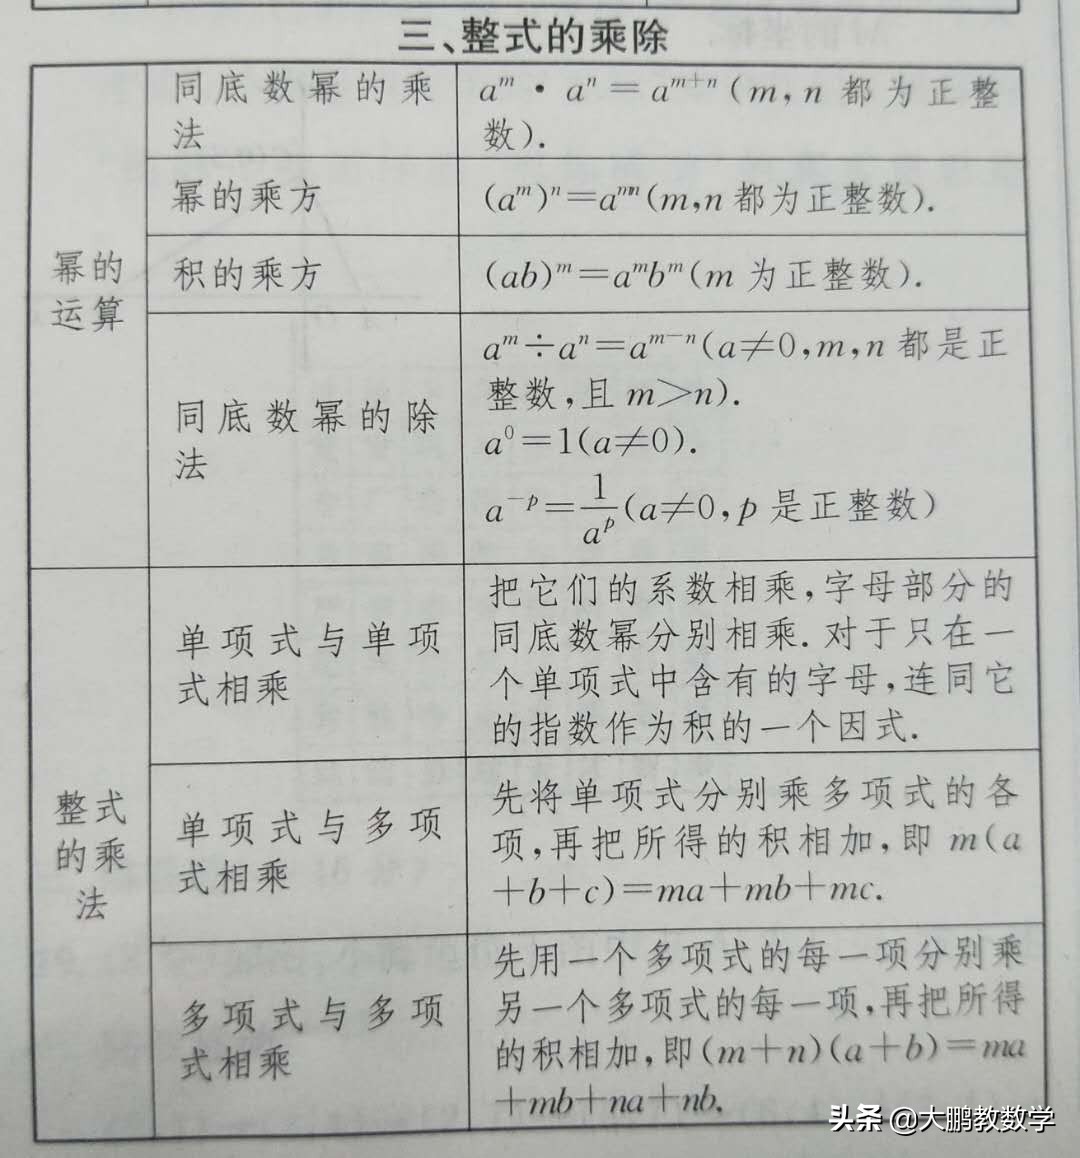 三、整式的乘除
幂的
运算
同底数幂的乘
法
aᵐ · aⁿ = aᵐ⁺ⁿ (m, n 都为正整
数).
幂的乘方
(aᵐ)ⁿ=aᵐⁿ(m,n 都为正整数).
积的乘方
(ab)ᵐ=aᵐbᵐ(m 为正整数).
同底数幂的除
法
aᵐ÷aⁿ=aᵐ⁻ⁿ(a≠0,m,n 都是正
整数,且 m>n).
a⁰=1(a≠0).
a⁻ᵖ=1/aᵖ(a≠0,p 是正整数)
整式
的乘
法
单项式与单项
式相乘
把它们的系数相乘,字母部分的
同底数幂分别相乘.对于只在一
个单项式中含有的字母,连同它
的指数作为积的一个因式.
单项式与多项
式相乘
先将单项式分别乘多项式的各
项,再把所得的积相加,即 m(a
+b+c)=ma+mb+mc.
多项式与多项
式相乘
先用一个多项式的每一项分别乘
另一个多项式的每一项,再把所得
的积相加,即(m+n)(a+b)=ma
+mb+na+nb.
头条 @大鹏教数学